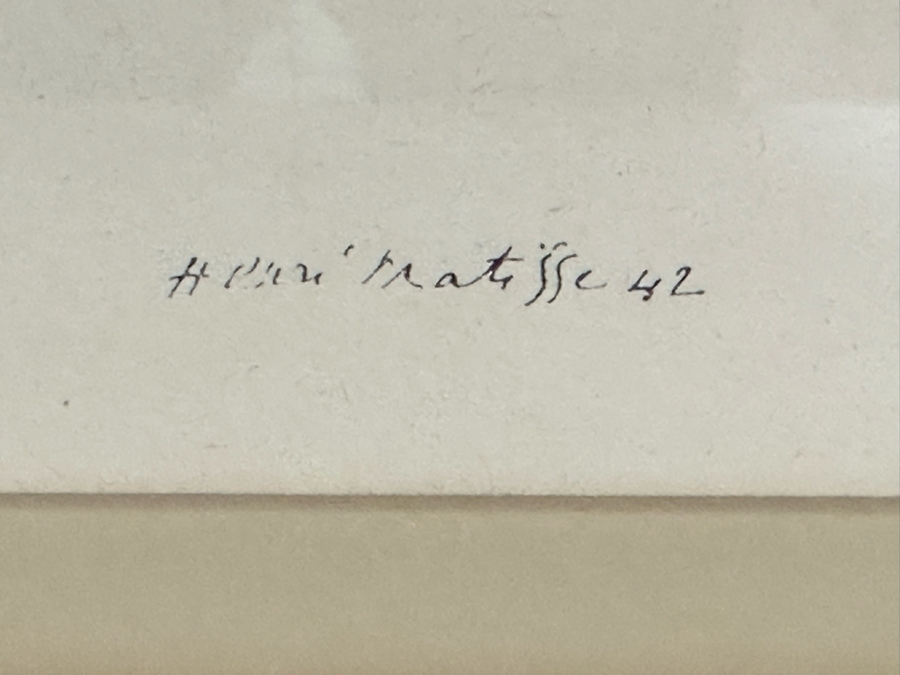 Henri Matisse 42